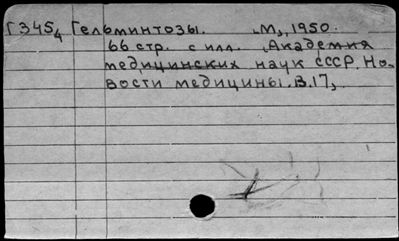 Г345₄ Гельминтозы. „М„, 1950.
66 стр. с илл. „Академия
медицинских наук СССР. Но-
вости медицины. В.17„